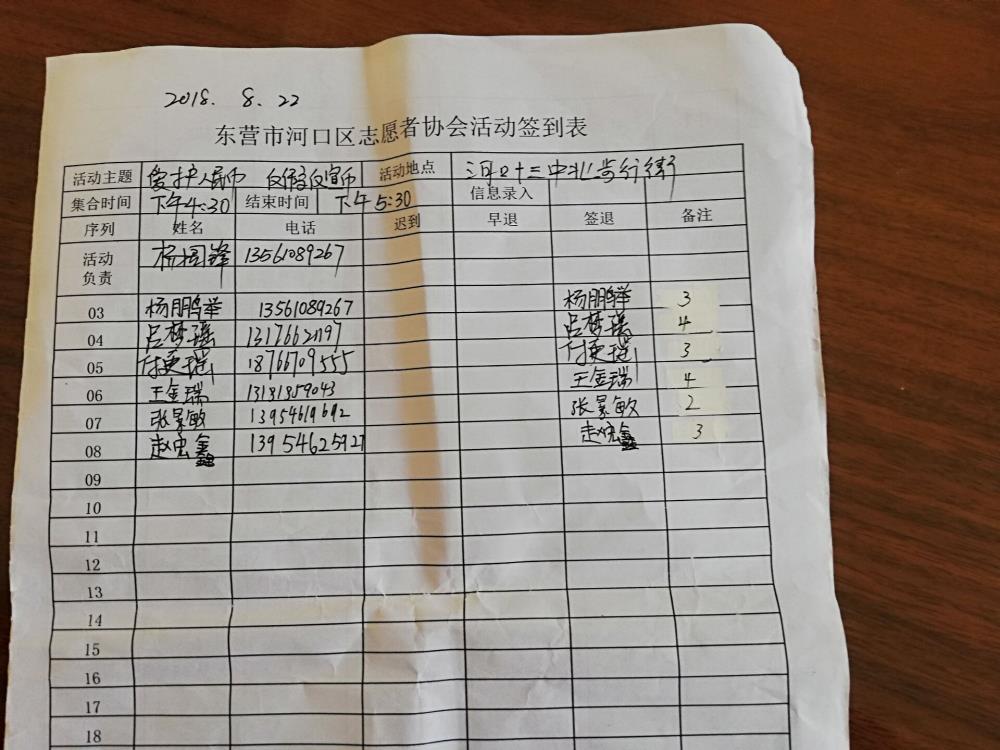 2018. 8. 22
东营市河口区志愿者协会活动签到表
活动主题 爱护人民币 反假宣 活动地点 河口十三中北步行街
集合时间 下午4:30 结束时间 下午5:30 信息录入
序列 姓名 电话 迟到 早退 签退 备注
活动负责 杨国锋 13561089267
03 杨鹏举 13561089267 杨鹏举 3
04 吕梦瑶 吕梦瑶 4
05 18766709555 3
06 王金瑞 13181859043 王金瑞 4
07 张景敏 张景敏 2
08 赵宏鑫 13954625927 赵宏鑫 3
09
10
11
12
13
14
15
16
17
18